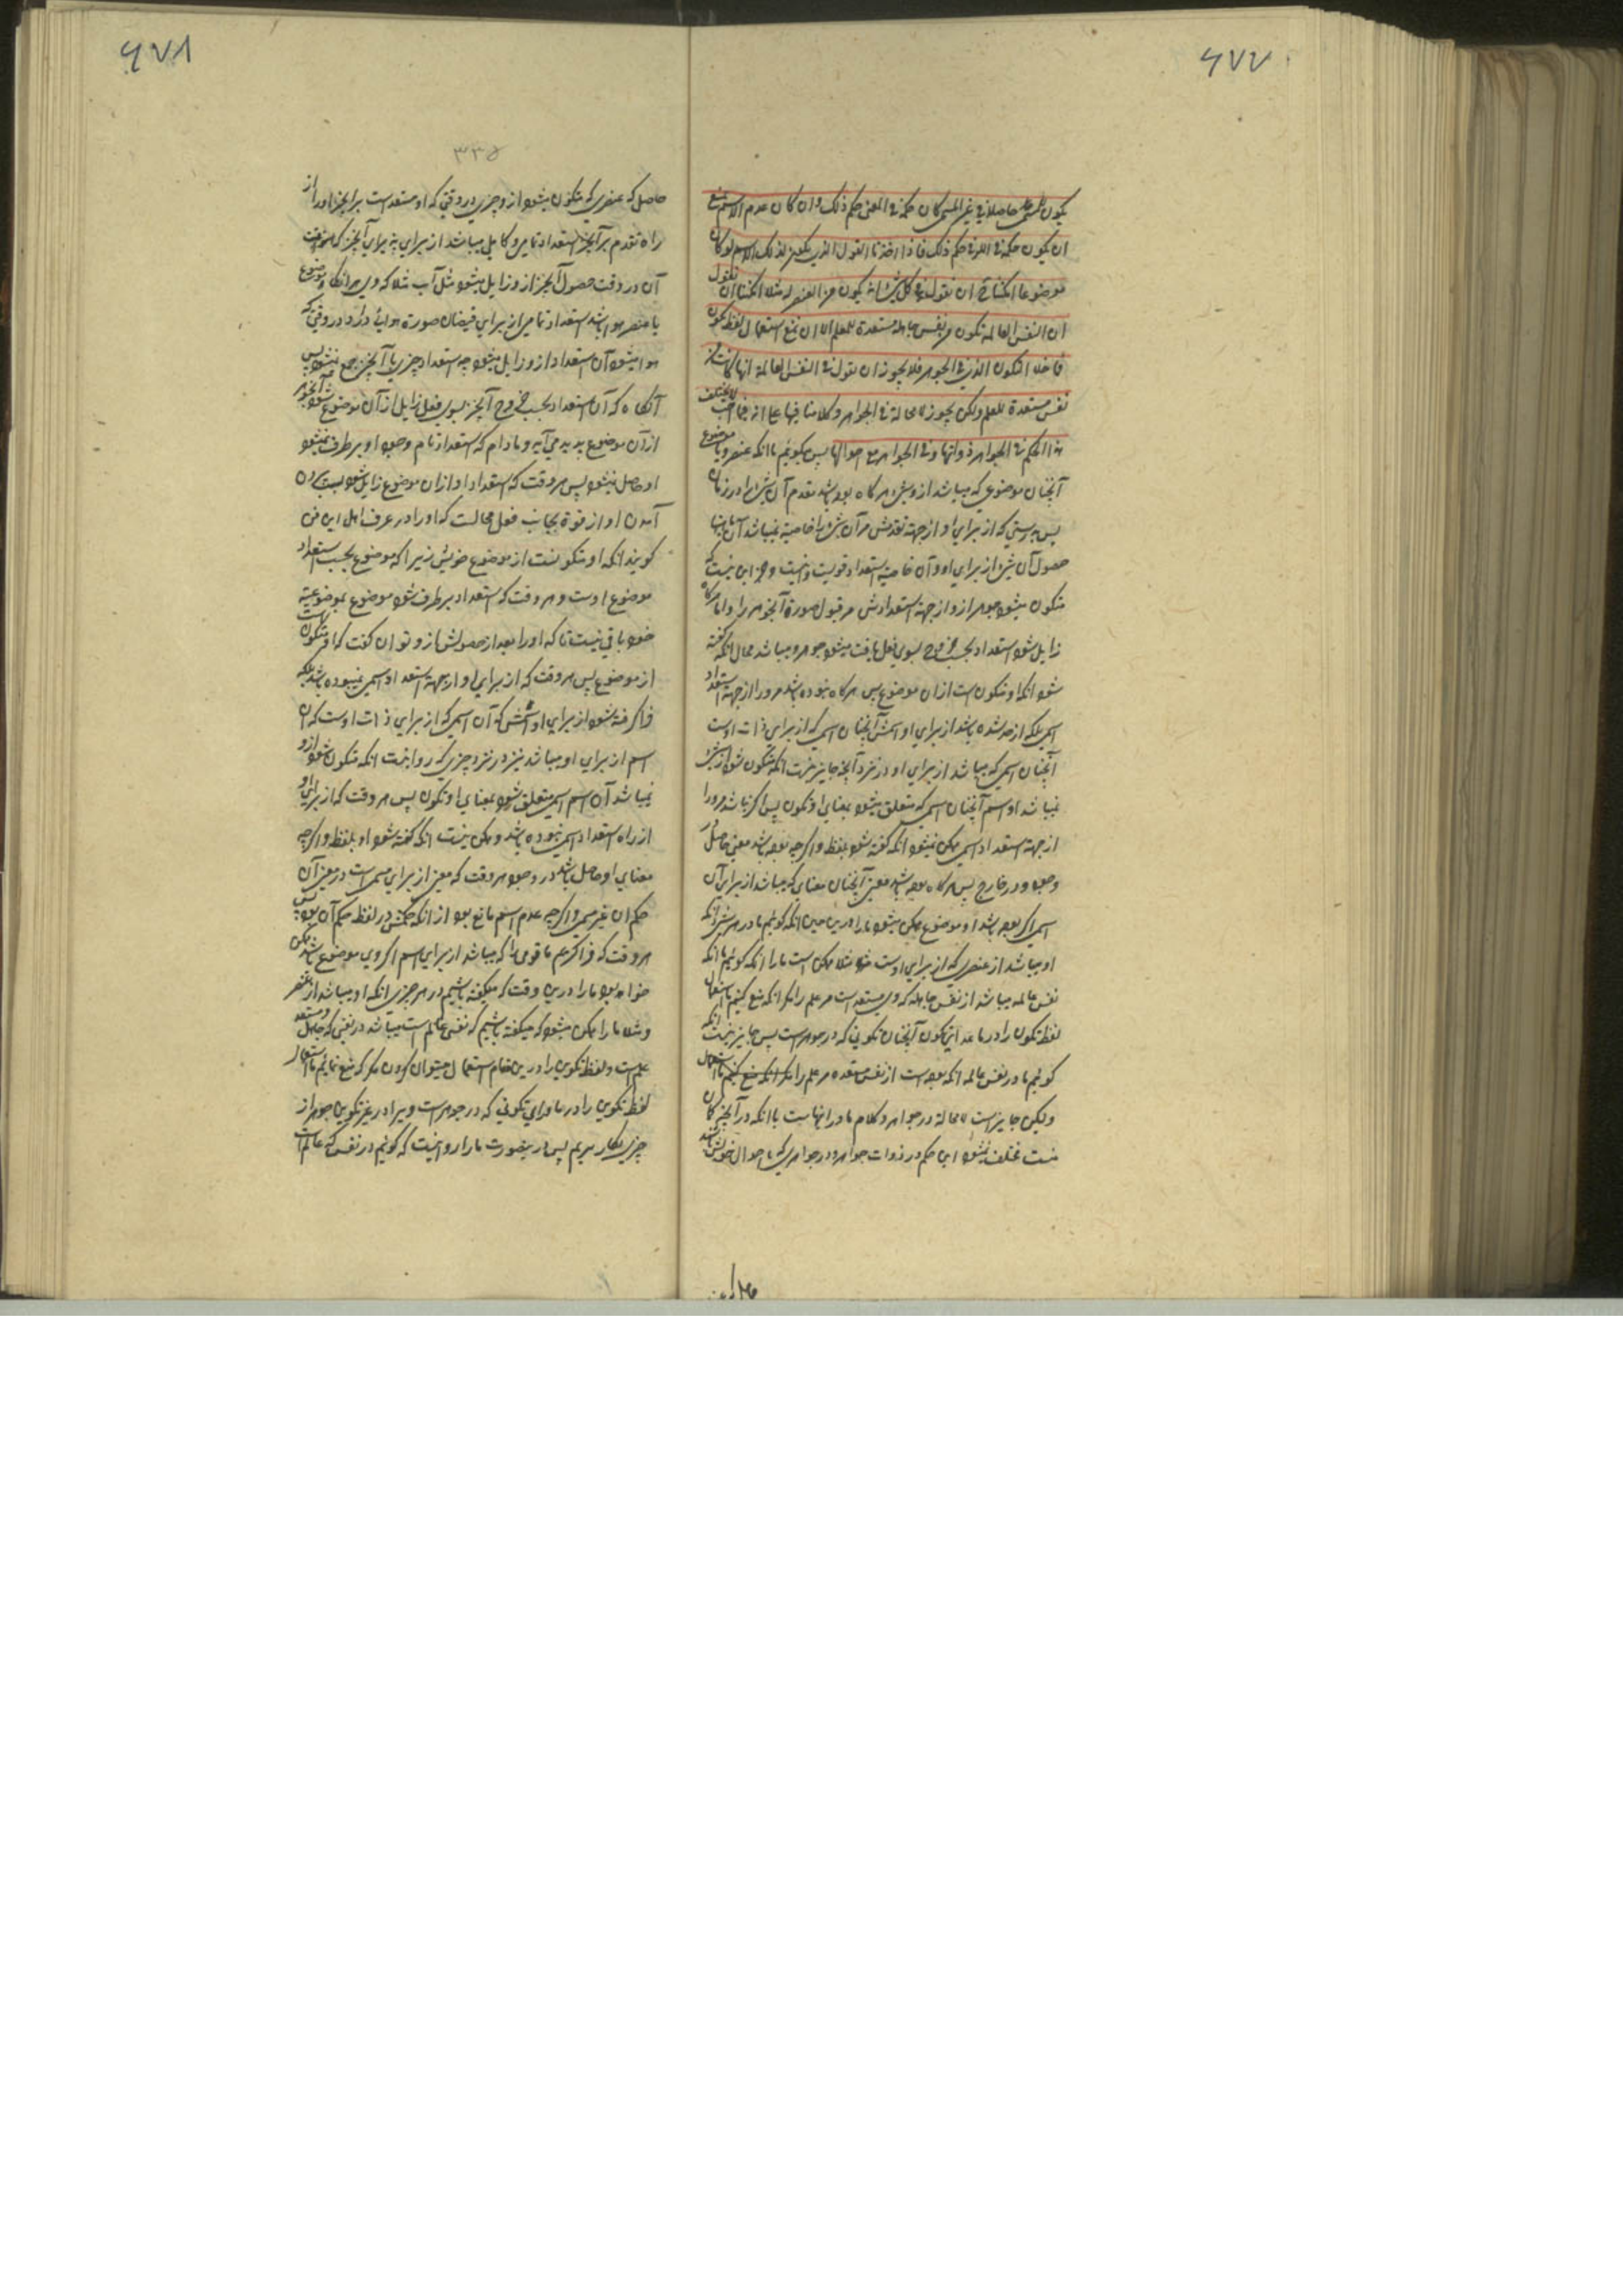 ۶۷۷
یکون حاصلا فی غیر المسمی کان حکمه فی المعنی حکم ذلک وان کان عدم الاسم یمنع
ان یکون حکمه فی اللفظ حکم ذلک فاذا اخذنا القول الذی یکون لذلک الاسم لو کان
موضوعا امکننا ان نقول فی کل شئ انه یکون من العنصر له مثلا امکننا ان نقول
ان النفس العالمة تکون من نفس جاهلة مستعدة للعلم الا ان نمنع استعمال لفظ یکون
فی ما خلا التکون الذی فی الجوهر فلا یجوز ان نقول فی النفس العالمة انها کانت من
نفس مستعدة للعلم ولکن یجوز لا محالة فی الجواهر وکلامنا فیها علی انه لا یختلف
هذا الحکم فی الجواهر ذواتها وفی الجواهر مع احوالها پس میکوئیم ما انکه عنصر و یا موضوع
آنچنان موضوعی که میباشد ازو شئ هر کاه بوده باشد مقدم آن شئ را در زمان
پس بدرستی که از برای او از جهة تقدمش مر آن شئ را خاصیة میباشد که آن با
حصول آن شئ از برای او و آن خاصیة استعداد قویست و نیست و جز این نیست که
متکون میشود جوهر ازو از جهة استعدادش مر قبول صورة آنجوهر را و اما هر کاه
زایل شود استعداد بحسب خروج بسوی فعل یافت میشود جوهر و میباشد محال انکه کفته
شود انکه او متکون است ازان موضوع پس هر کاه نبوده باشد مر ورا از جهة استعداد
اسمی بلکه اخذ شده باشد از برای او اسمش آنچنان اسمی که از برای ذات اوست
آنچنان اسمی که میباشد از برای او در نزد آنچه جایز نیست انکه متکون شود از شئ
نمیباشد او اسم آنچنان اسمی که متعلق میشود بمعنای او تکون پس اکر نباشد مر ورا
از جهة استعداد اسمی ممکن نمیشود انکه کفته شود بلفظ و اکر چه بوده باشد معنی حاصل در
وجود و در خارج پس هر کاه بوده باشد معنی آنچنان معنای که میباشد از برای آن
اسمی اکر بوده باشد او موضوع ممکن میشود ما را درین حین انکه کوئیم ما در هر شئ انکه
او میباشد از عنصری که از برای اوست مثلا ممکن است ما را انکه کوئیم ما انکه
نفس عالمه میباشد از نفس جاهله که وی مستعد است مر علم را مکر انکه منع کنیم ما استعمال
لفظ تکون را در ما عدا این تکون آنچنان تکونی که در جوهر است پس جایز نیست انکه
کوئیم ما در نفس عالمه انکه بوده است از نفس مستعده مر علم را
ولیکن جایز است لا محالة در جواهر و کلام ما در انهاست با انکه در آنچیز کان
نیست مختلف میشود این حکم در ذوات جواهر و در جواهری که با احوال خویش باشد
حاصل
۶۷۸
۳۳۵
حاصل که عنصری که متکون میشود ازو چیزی در وقتی که او مستعد است بر آنچیز او را از
راه تقدم بر آنچیز استعداد تامی و کامل میباشد از برای پذیرای آنچیز که
آن در وقت حصول آنچیز ازو زایل میشود مثل آب مثلا که وی هرانکاه موضوع
یا عنصر هوا باشد استعداد تامی از برای فیضان صورة هوائی دارد در وقتی که
هوا میشود آن استعداد ازو زایل میشود چه استعداد چیزی با آنچیز جمع نمیشود پس
آنکاه که آن استعداد بحسب خروج آنچیز بسوی فعل زایل ازآن موضوع شود آنجوهر
ازآن موضوع پدید می‌آید و مادام که استعداد تام وجود او بر طرف نمیشود
او حاصل نمیشود پس هر وقت که استعداد او ازان موضوع زایل شود بسبب بیرون
آمدن او از قوة بجانب فعل محالست که او را در عرف اهل این فن
کویند انکه او متکونست از موضوع خویش زیرا که موضوع بحسب استعداد
موضوع اوست و هر وقت که استعداد بر طرف شود موضوع بموضوعیة
خود باقی نیست تا که او را بعد از حصولش ازو توان کفت که او متکون است
از موضوع پس هر وقت که از برای او از جهة استعداد اسمی نبوده باشد بلکه
فرا کرفته شود از برای او اسمش که آن اسمی که از برای ذات اوست که آن
اسم از برای او میباشد نیز در نزد چیزی که روا نیست انکه متکون شود ازو
نمیباشد آن اسم اسمی متعلق شود بمعنای او تکون پس هر وقت که از برای او
از راه استعداد اسمی نبوده باشد و ممکن نیست انکه کفته شود او بلفظ و اکر چه
معنای او حاصل باشد در وجود هر وقت که معنی از برای مسمی است در معنی آن
حکم ان غیر مسمی و اکر چه عدم اسم مانع بود از انکه حکمش در لفظ حکم آن بود پس
هر وقت که فرا کریم ما قولی را که میباشد از برای اسم اکر وی موضوع باشد ممکن
خواهد بود ما را درین وقت که میکفته باشیم در هر چیزی انکه او میباشد از عنصر
و مثلا ما را ممکن میشود که میکفته باشیم که نفسی عالم است میباشد در نفسی که جاهل و مستعد
علم است و لفظ تکوین را درین مقام استعمال میتوان کردن مکر که منع نمائیم ما استعمال
لفظ تکوین را در ماورای تکونی که در جوهر است و یرا در غیر تکوین جوهر از
چیزی بکار بریم پس در ینصورت ما را روا نیست که کوئیم در نفسی که عالم است